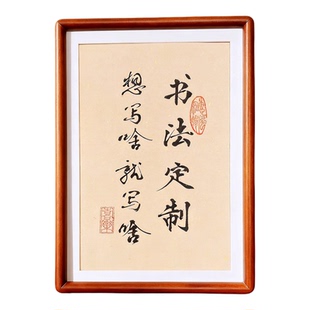 书法定制
想写啥就写啥